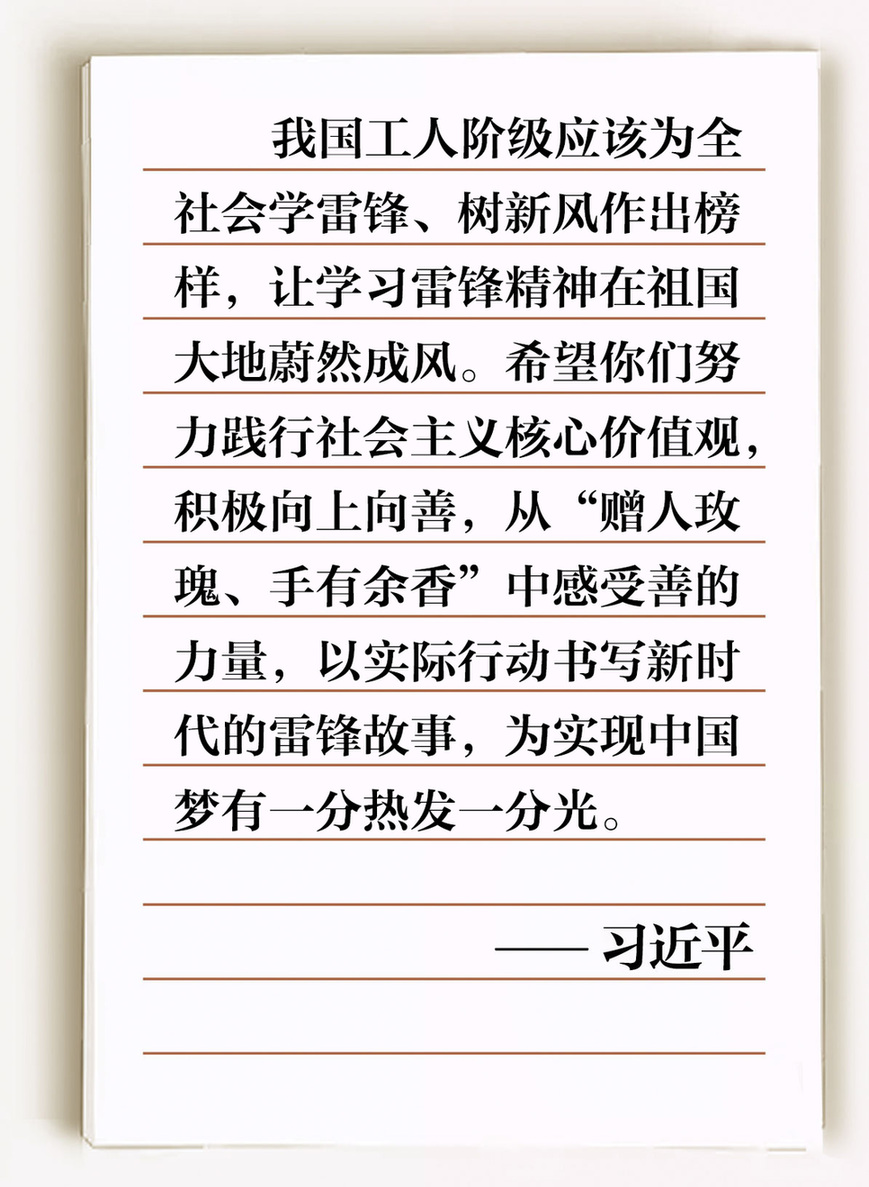 我国工人阶级应该为全
社会学雷锋、树新风作出榜
样，让学习雷锋精神在祖国
大地蔚然成风。希望你们努
力践行社会主义核心价值观，
积极向上向善，从“赠人玫
瑰、手有余香”中感受善的
力量，以实际行动书写新时
代的雷锋故事，为实现中国
梦有一分热发一分光。
—— 习近平